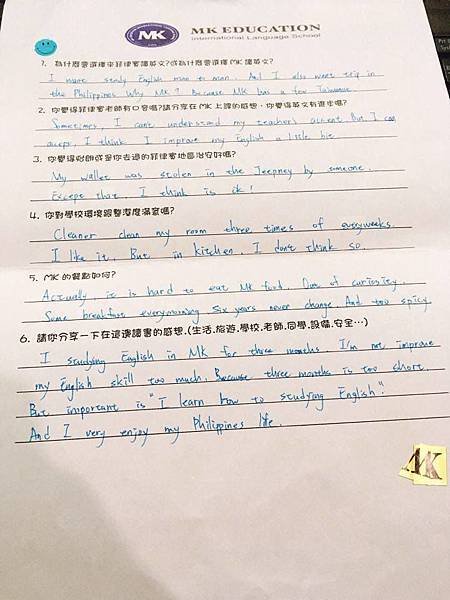 MK EDUCATION
International Language School
MK
1. 為什麼會選擇來菲律賓讀英文?或為什麼選擇MK讀英文?
I want study English man to man. And I also want trip in
the Philippines Why MK? Because MK has a few Taiwanese.
2. 你覺得菲律賓老師有口音嗎?請分享在MK上課的感想,你覺得英文有進步嗎?
Sometimes, I can't understand my teacher's accent But I can
accept, I think I improve my English a little bit
3. 你覺得怡朗或是你去過的菲律賓地區治安好嗎?
My wallet was stolen in the Jeepney by someone.
Except that I think is ok!
4. 你對學校環境跟整潔度滿意嗎?
Cleaner clean my room three times of everyweeks.
I like it. But in kitchen, I don't think so.
5. MK的餐點如何?
Actually it is hard to eat MK food. of curiosity,
Same breakfast everymorning six years never change And too spicy
6. 請你分享一下在這邊讀書的感想.(生活.旅遊.學校.老師.同學.設備.安全…)
I studying English in MK for three months I'm not improve
my English skill too much. Because three months is too short.
But important is "I learn how to studying English".
And I very enjoy my Philippines life.
MK